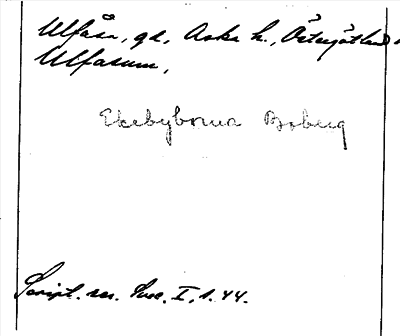 Ulfåsa, gd, Aska h., Östergötland.
Ulfasum.
Ekebyborna Boberg
Script. rer. Suec. I, s. 44.